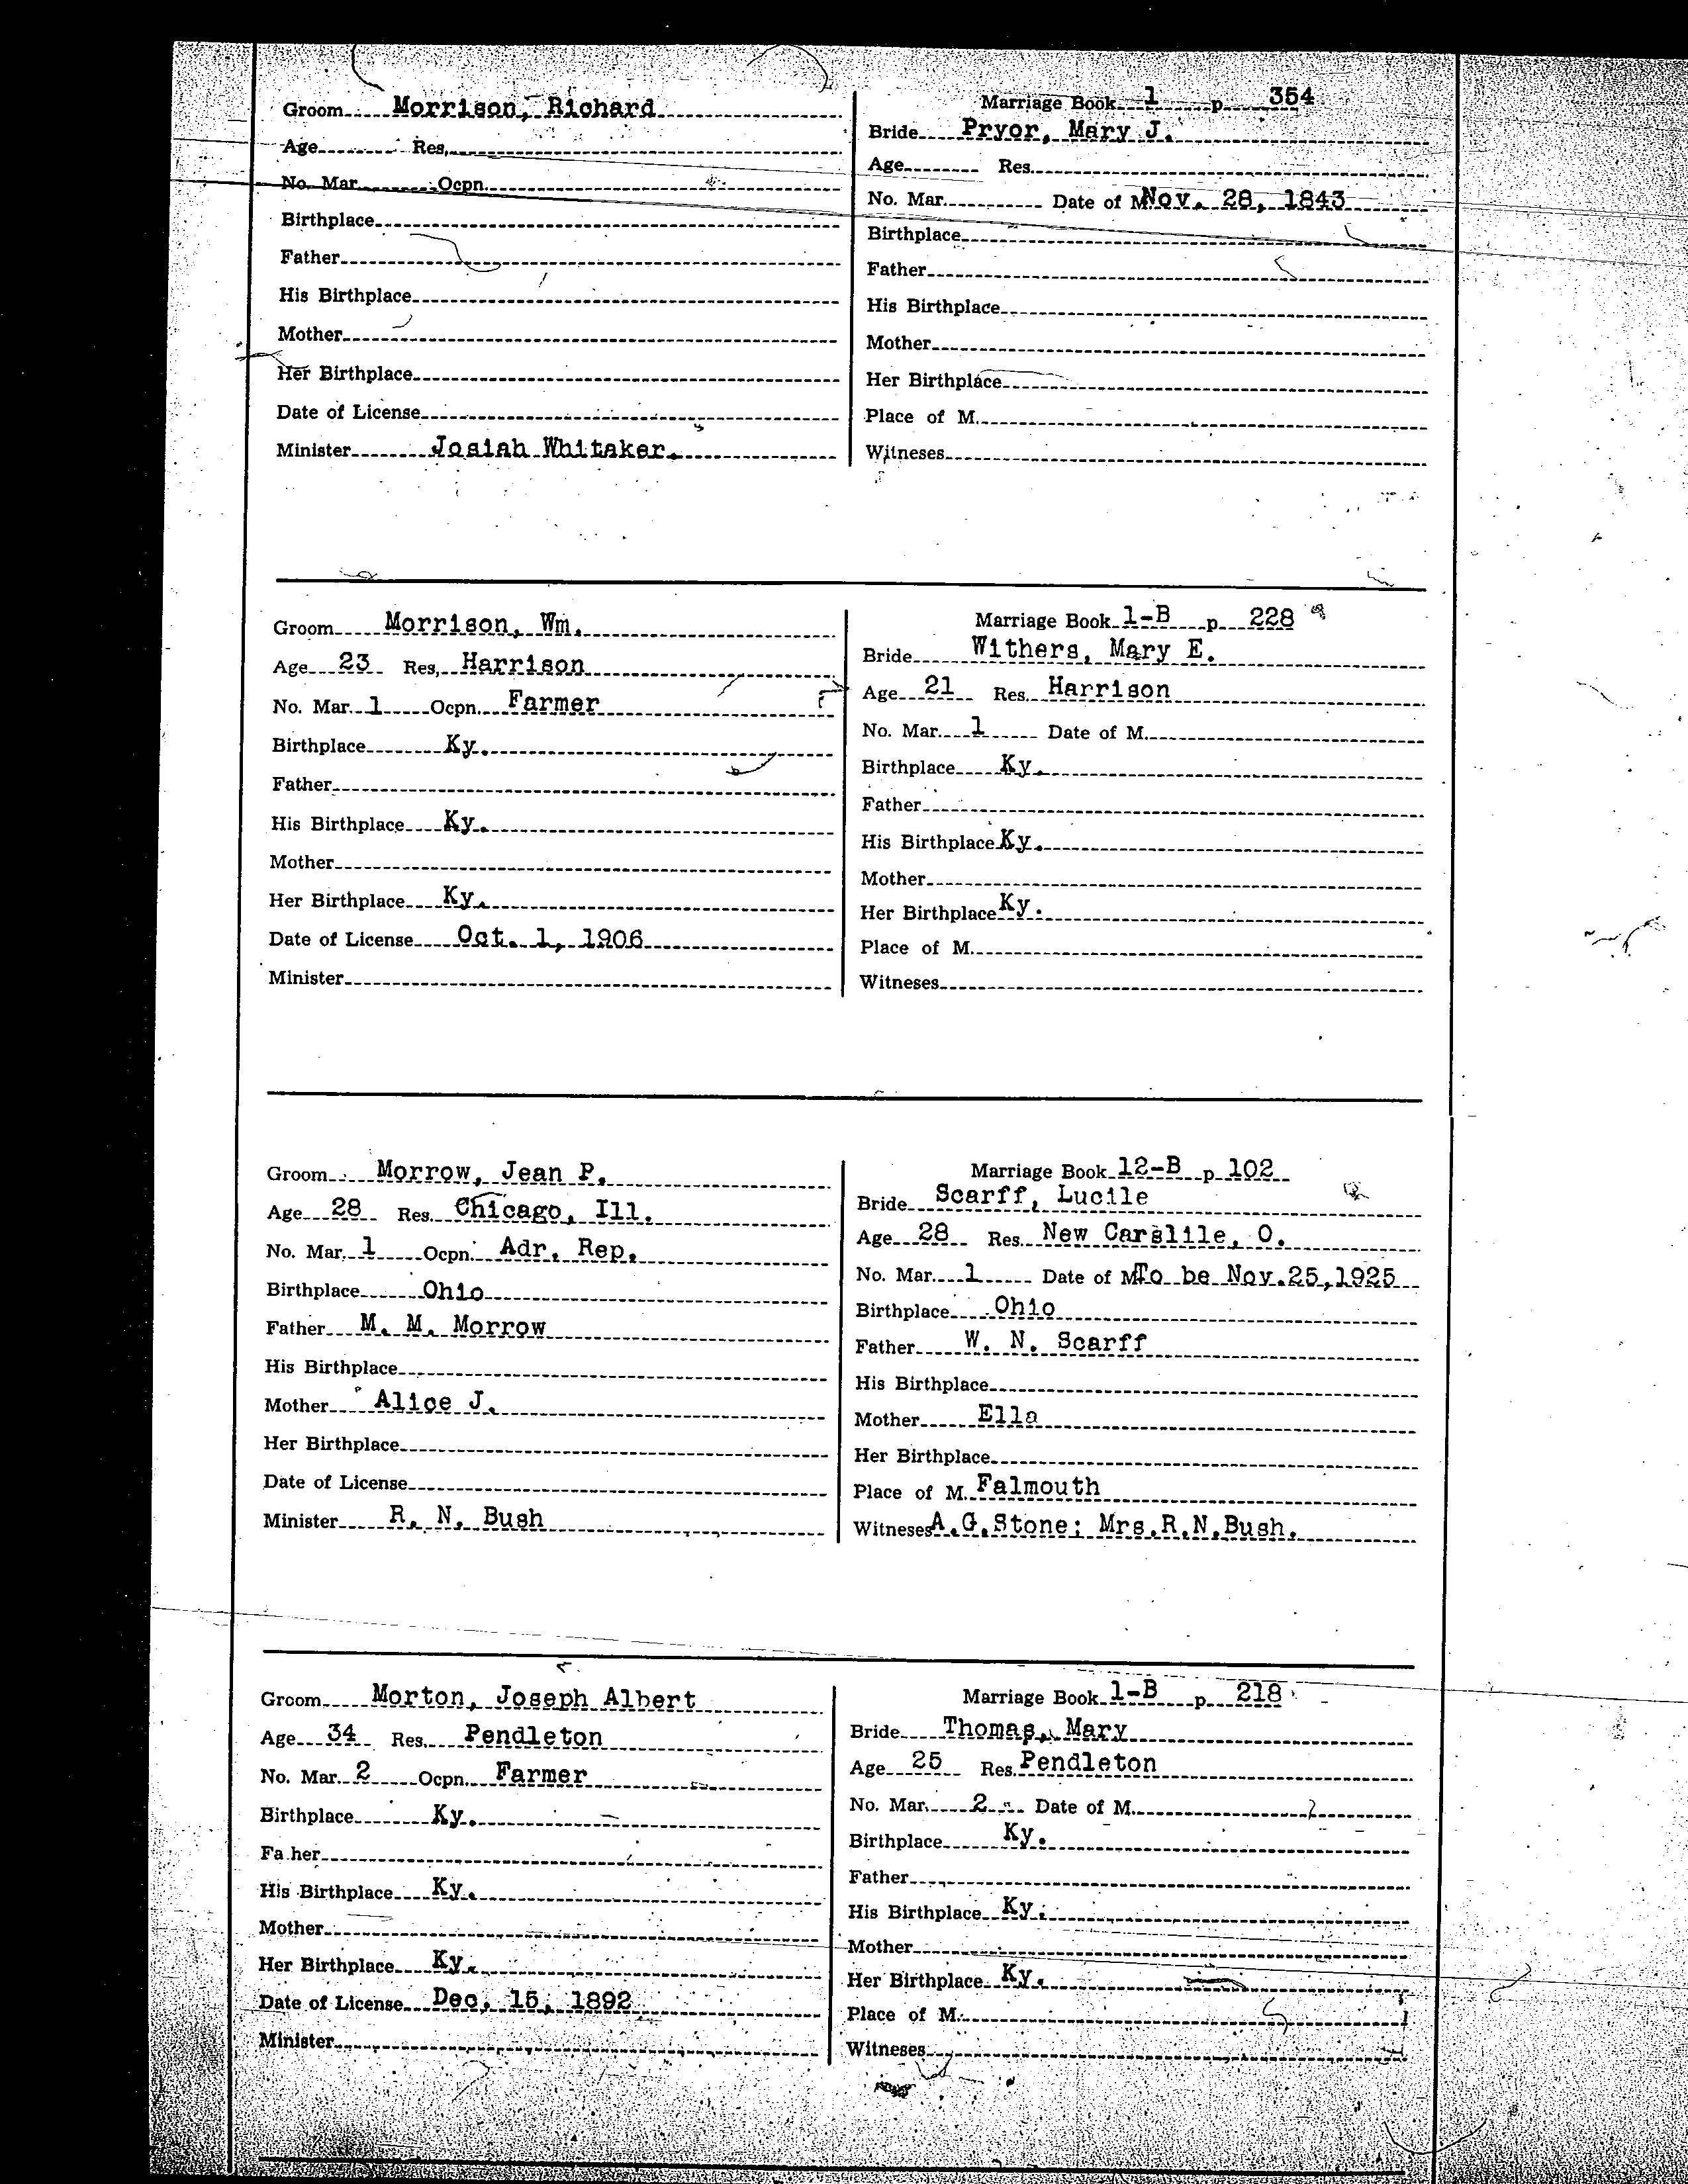 Groom Morrison, Richard
Age Res.
No. Mar. Ocpn.
Birthplace
Father
His Birthplace
Mother
Her Birthplace
Date of License
Minister Josiah Whitaker.
Marriage Book 1 p 354
Bride Pryor, Mary J.
Age Res.
No. Mar. Date of M Nov. 28, 1843
Birthplace
Father
His Birthplace
Mother
Her Birthplace
Place of M.
Witneses
Groom Morrison, Wm.
Age 23 Res. Harrison
No. Mar. 1 Ocpn. Farmer
Birthplace Ky.
Father
His Birthplace Ky.
Mother
Her Birthplace Ky.
Date of License Oct. 1, 1906
Minister
Marriage Book 1-B p 228
Bride Withers, Mary E.
Age 21 Res. Harrison
No. Mar. 1 Date of M.
Birthplace Ky.
Father
His Birthplace Ky.
Mother
Her Birthplace Ky.
Place of M.
Witneses
Groom Morrow, Jean P.
Age 28 Res. Chicago, Ill.
No. Mar. 1 Ocpn. Adr. Rep.
Birthplace Ohio
Father M. M. Morrow
His Birthplace
Mother Alice J.
Her Birthplace
Date of License
Minister R. N. Bush
Marriage Book 12-B p 102
Bride Scarff, Lucile
Age 28 Res. New Carslile, O.
No. Mar. 1 Date of M To be Nov.25,1925
Birthplace Ohio
Father W. N. Scarff
His Birthplace
Mother Ella
Her Birthplace
Place of M. Falmouth
Witneses A.G.Stone; Mrs.R.N.Bush.
Groom Morton, Joseph Albert
Age 34 Res. Pendleton
No. Mar. 2 Ocpn. Farmer
Birthplace Ky.
Fa her
His Birthplace Ky.
Mother
Her Birthplace Ky.
Date of License Dec. 15, 1892
Minister
Marriage Book 1-B p 218
Bride Thomas, Mary
Age 25 Res. Pendleton
No. Mar. 2 Date of M.
Birthplace Ky.
Father
His Birthplace Ky.
Mother
Her Birthplace Ky.
Place of M.
Witneses